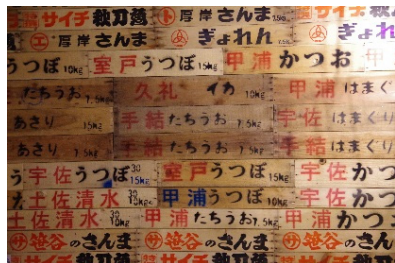 サイチ 秋刀魚 厚岸 さんま サイチ
エ 厚岸 さんま ぎょれん
うつぼ 10kg 室戸 うつぼ 15kg 甲浦 かつお
たちうお 7.5kg 久礼 イカ 10kg 甲浦 はまぐり
あさり 15kg 手結 たちうお 7.5kg 宇佐 はまぐり
あさり 7.5kg 手結 たちうお 7.5kg 手結 はまぐり
う 宇佐 うつぼ 30 15kg 室戸 うつぼ 15kg 宇佐 かつ
た 土佐清水 30 10kg 甲浦 うつぼ 10kg 宇佐 かつ
土佐清水 30 10kg 甲浦 たちうお 7.5kg 甲浦 かつ
サ 笹谷のさんま サ 笹谷のさんま サ 笹谷の
サイチ サイチ